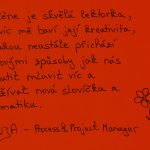 je skvělá lektorka,
víc mě baví její kreativita,
jakou neustále přichází
novými způsoby jak nás
nutit mluvit víc a
užívat nová slovíčka a
matiku.
- Process & Project Manager